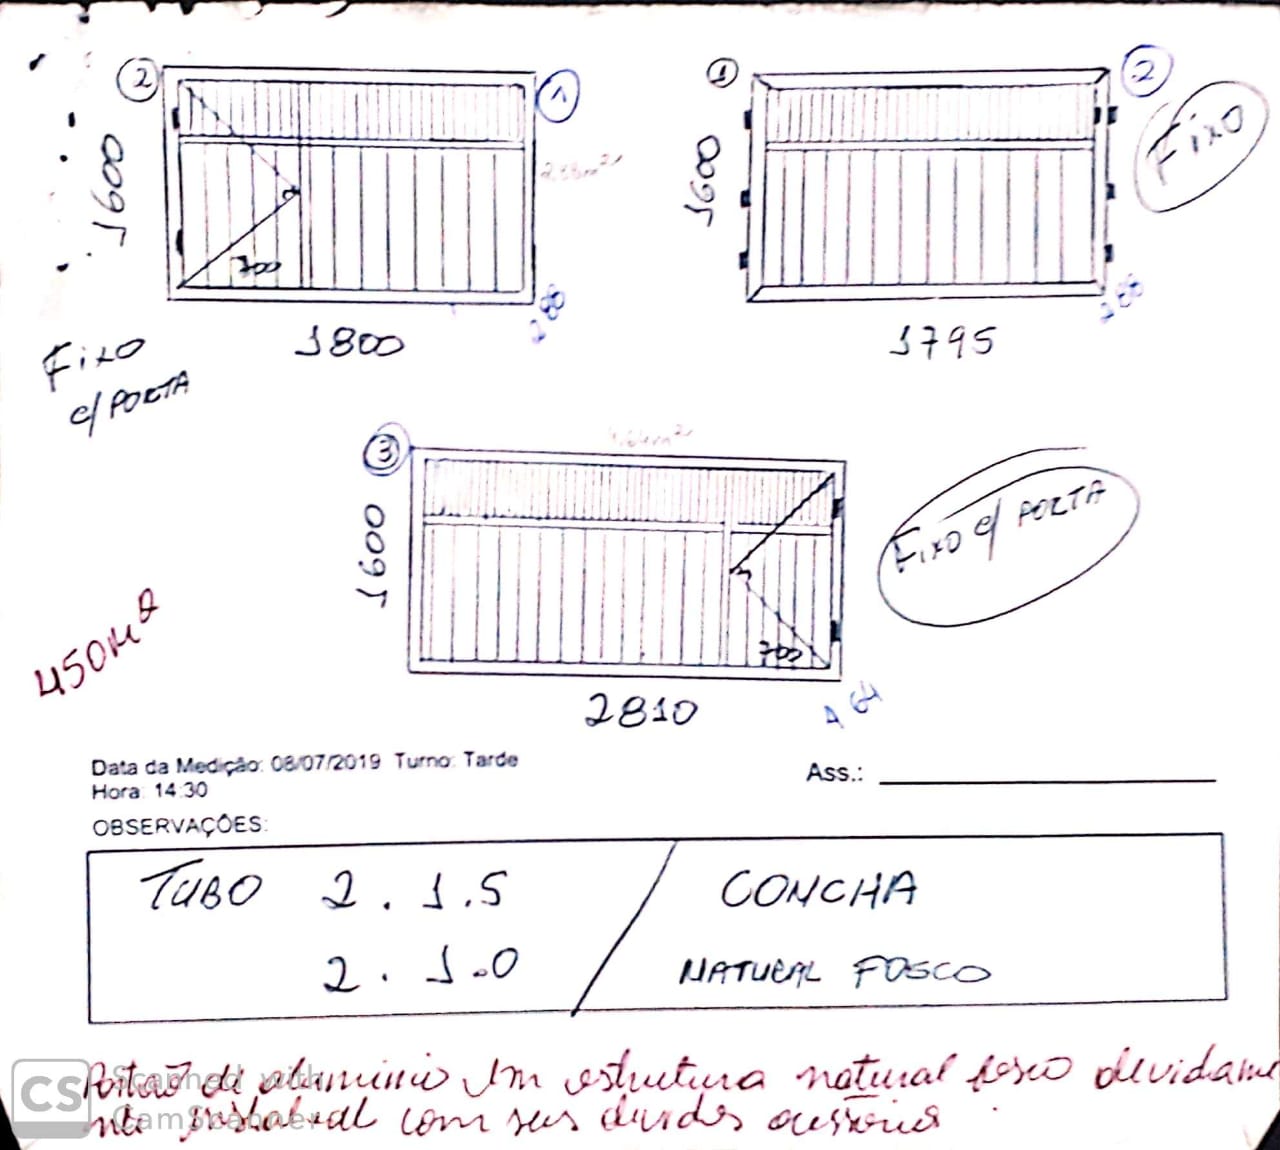 2
1
1600
2.88m²
700
1800
288
Fixo
c/ PORTA
1
2
1600
Fixo
1795
288
3
4.64m²
1600
700
2810
4 64
Fixo c/ PORTA
450M²
Data da Medição: 08/07/2019 Turno: Tarde
Hora: 14:30
Ass.:
OBSERVAÇÕES:
TUBO 2 . 1 .5 / CONCHA
2 . 1.0 NATURAL FOSCO
Portão de aluminio em estrutura natural fosco devidame
com seus
CS Scanned with
CamScanner